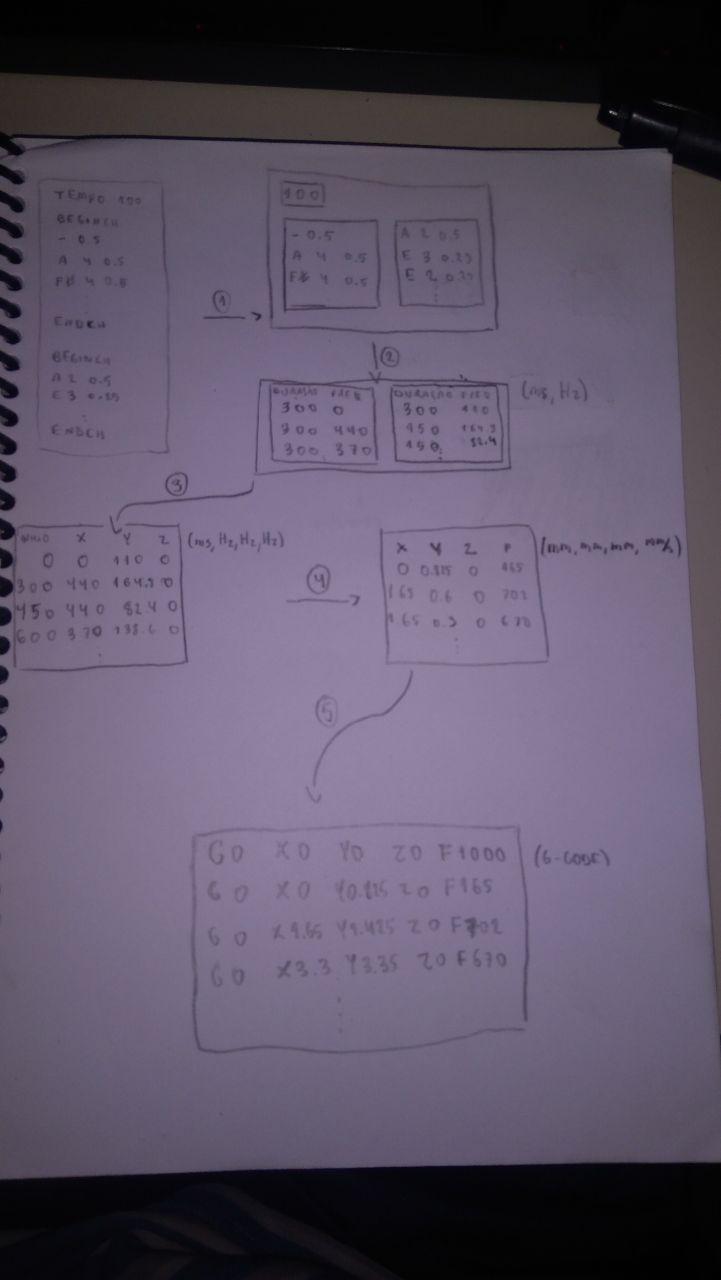 TEMPO 100
BEGINCH
- 0.5
A 4 0.5
F# 4 0.5
⋮
ENDCH
BEGINCH
A 2 0.5
E 3 0.25
⋮
ENDCH
①
100
- 0.5
A 4 0.5
F# 4 0.5
A 2 0.5
E 3 0.25
E 2 0.25
⋮
②
DURAÇÃO FREQ
300 0
300 440
300 370
DURAÇÃO FREQ
300 110
150 164.8
150 82.4
⋮
(ms, Hz)
③
X Y Z
0 0 110 0
300 440 164.8 0
450 440 82.4 0
600 370 138.6 0
⋮
(ms, Hz, Hz, Hz)
④
X Y Z F
0 0.825 0 165
1.65 0.6 0 702
1.65 0.3 0 670
⋮
(mm, mm, mm, mm/s)
⑤
G0 X0 Y0 Z0 F1000
G0 X0 Y0.825 Z0 F165
G0 X1.65 Y1.425 Z0 F702
G0 X3.3 Y3.35 Z0 F670
⋮
(G-CODE)